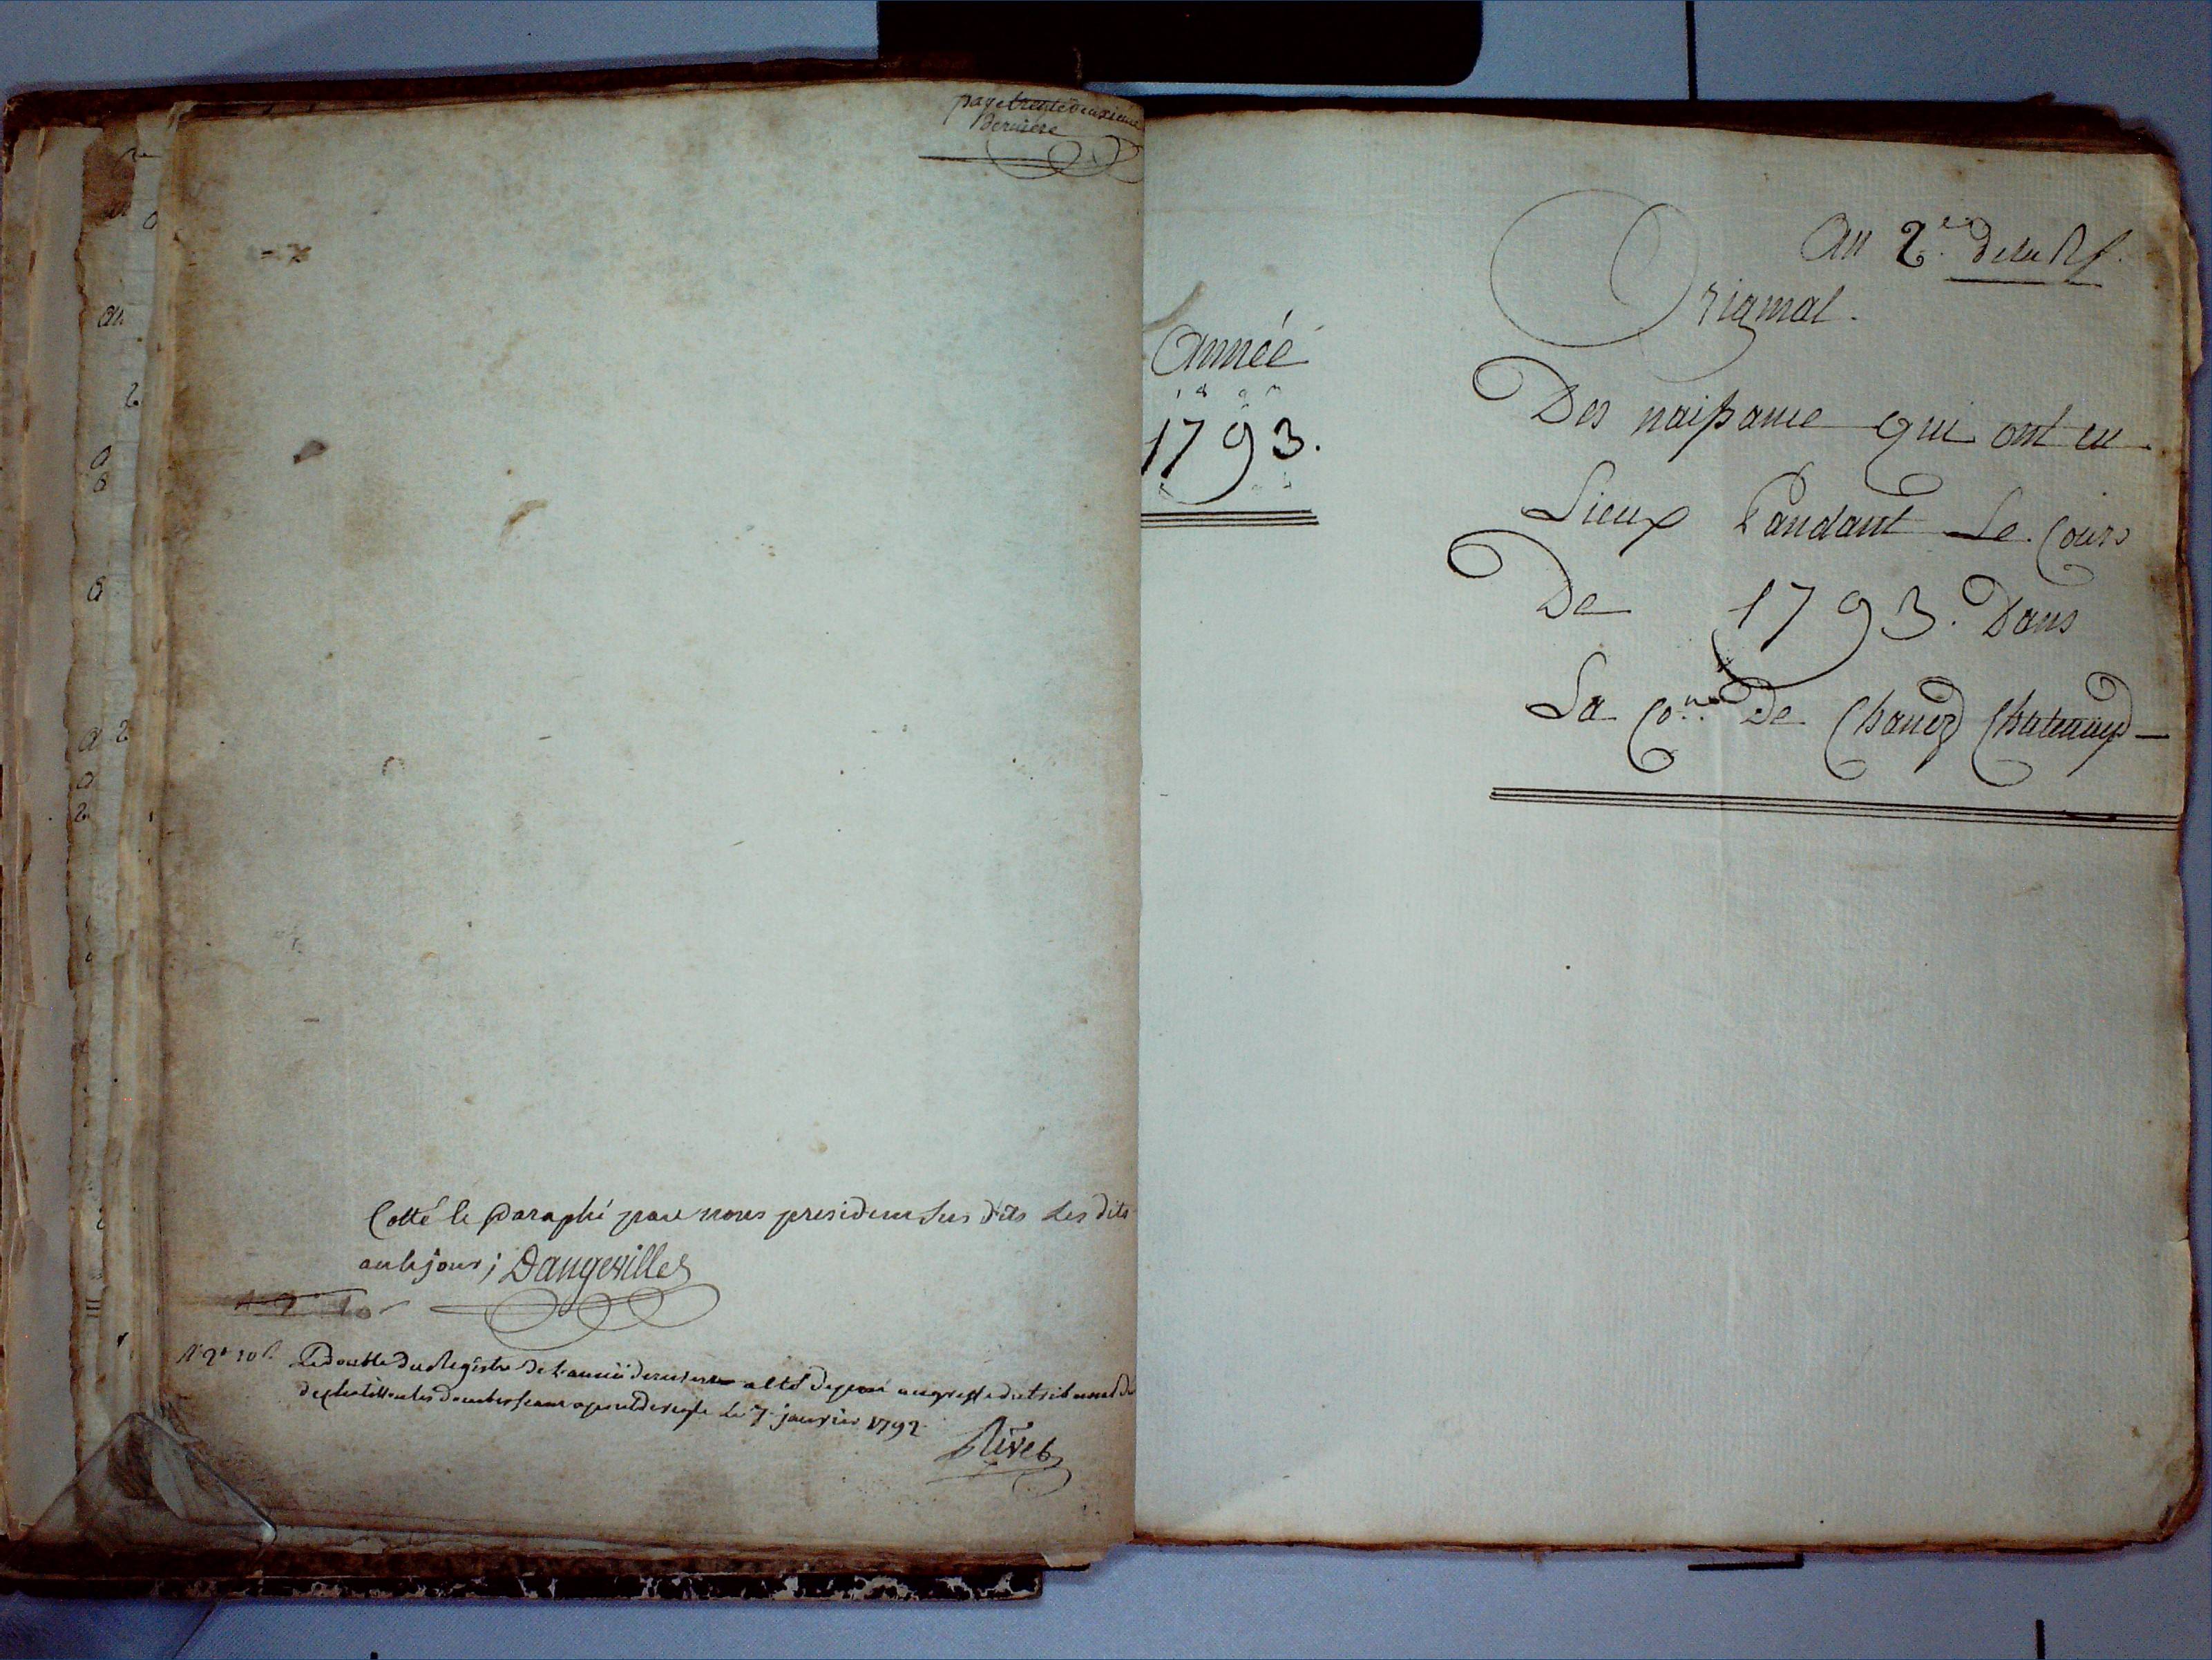 page trente deuxieme
Derniere
Cotté le Paraphé par nous president sus dits Les dits
an le jour; Dangeville
Le double du Registre de L'année derniere a été déposé au greffe du tribunal de
de chatillon les Dombes le 7 janvier 1792
Rivet
an 2e. de la Rf.
Année
1793.
Original.
Des naissance qui ont eu
Lieux Pandant Le Cours
De 1793. Dans
La Co.ne De Chanoz Chatenay